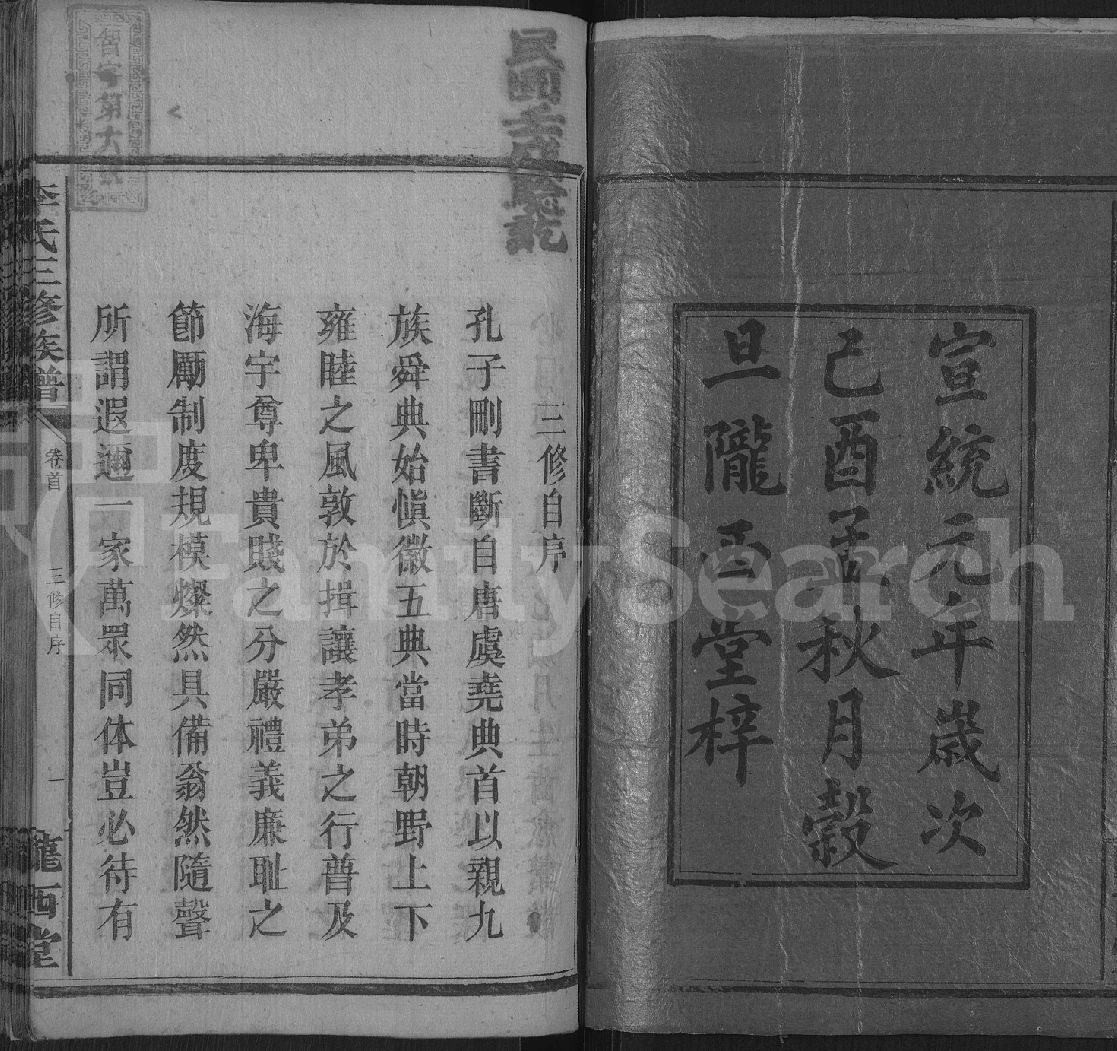 宣統元年歲次
己酉孟秋月穀
旦隴西堂梓
三修自序
孔子刪書斷自唐虞堯典首以親九
族舜典始愼徽五典當時朝野上下
雍睦之風敦於揖讓孝弟之行普及
海宇尊卑貴賤之分嚴禮義廉耻之
節勵制度規模燦然具備翁然隨聲
所謂遐邇一家萬眾同体豈必待有
李氏三修族譜
卷首
三修自序
一
隴西堂
FamilySearch